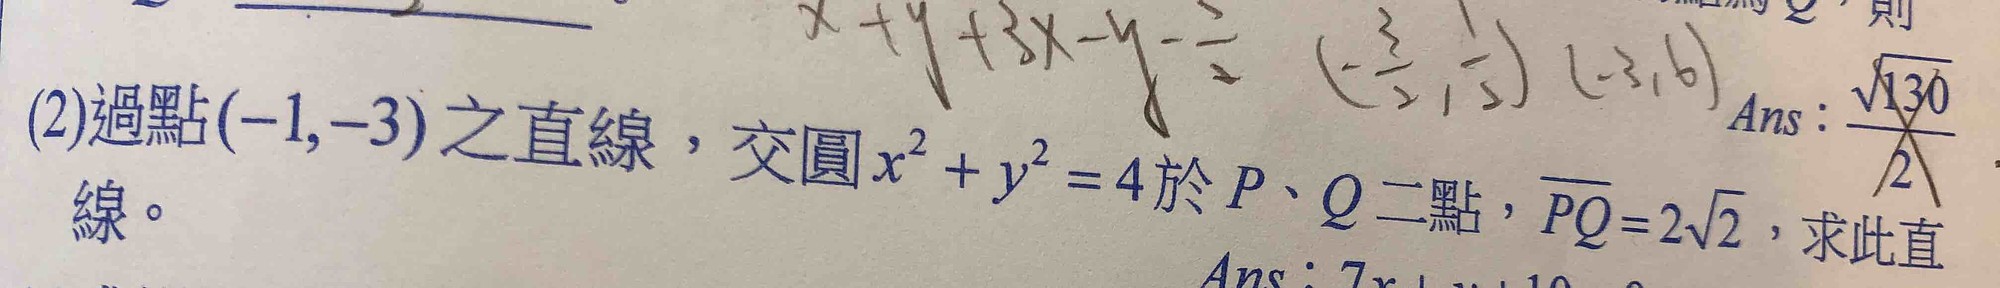 x+y+3x-y-
(-3/2, 1/2) (-3,6)
則
Ans : √130/2
(2)過點(−1,−3)之直線，交圓 x² + y² = 4於 P、Q 二點，PQ̅ = 2√2，求此直
線。
Ans : 7x + y + 10